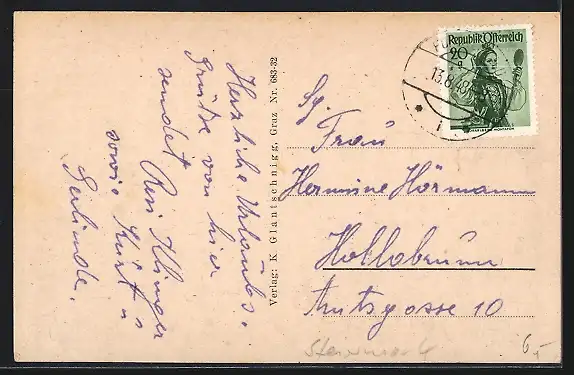 Herzliche Urlaubs-
grüße von hier
sendet Resi Klinger
sowie Kurt u
Gerlinde.
Verlag: K Glantschnigg, Graz Nr. 683-32
Republik Österreich
20
13.8.48
Sg.
Frau
Hermine Hörmann
Hollabrunn
Amtsgasse 10
Steiermark
6,-